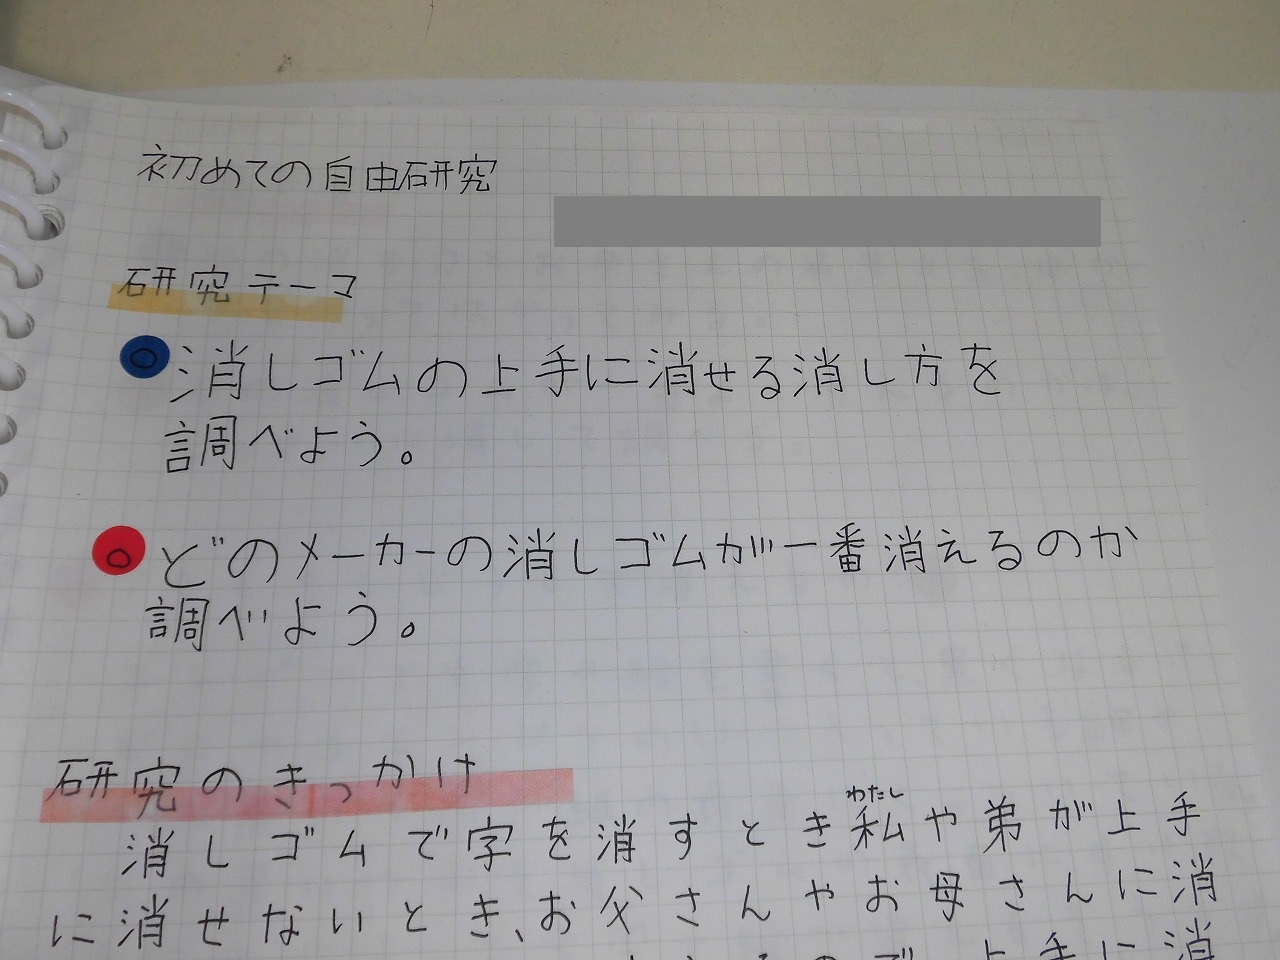 初めての自由研究
研究テーマ
消しゴムの上手に消せる消し方を
調べよう。
どのメーカーの消しゴムが一番消えるのか
調べよう。
研究のきっかけ
わたし
消しゴムで字を消すとき私や弟が上手
に消せないとき、お父さんやお母さんに消
上手に消